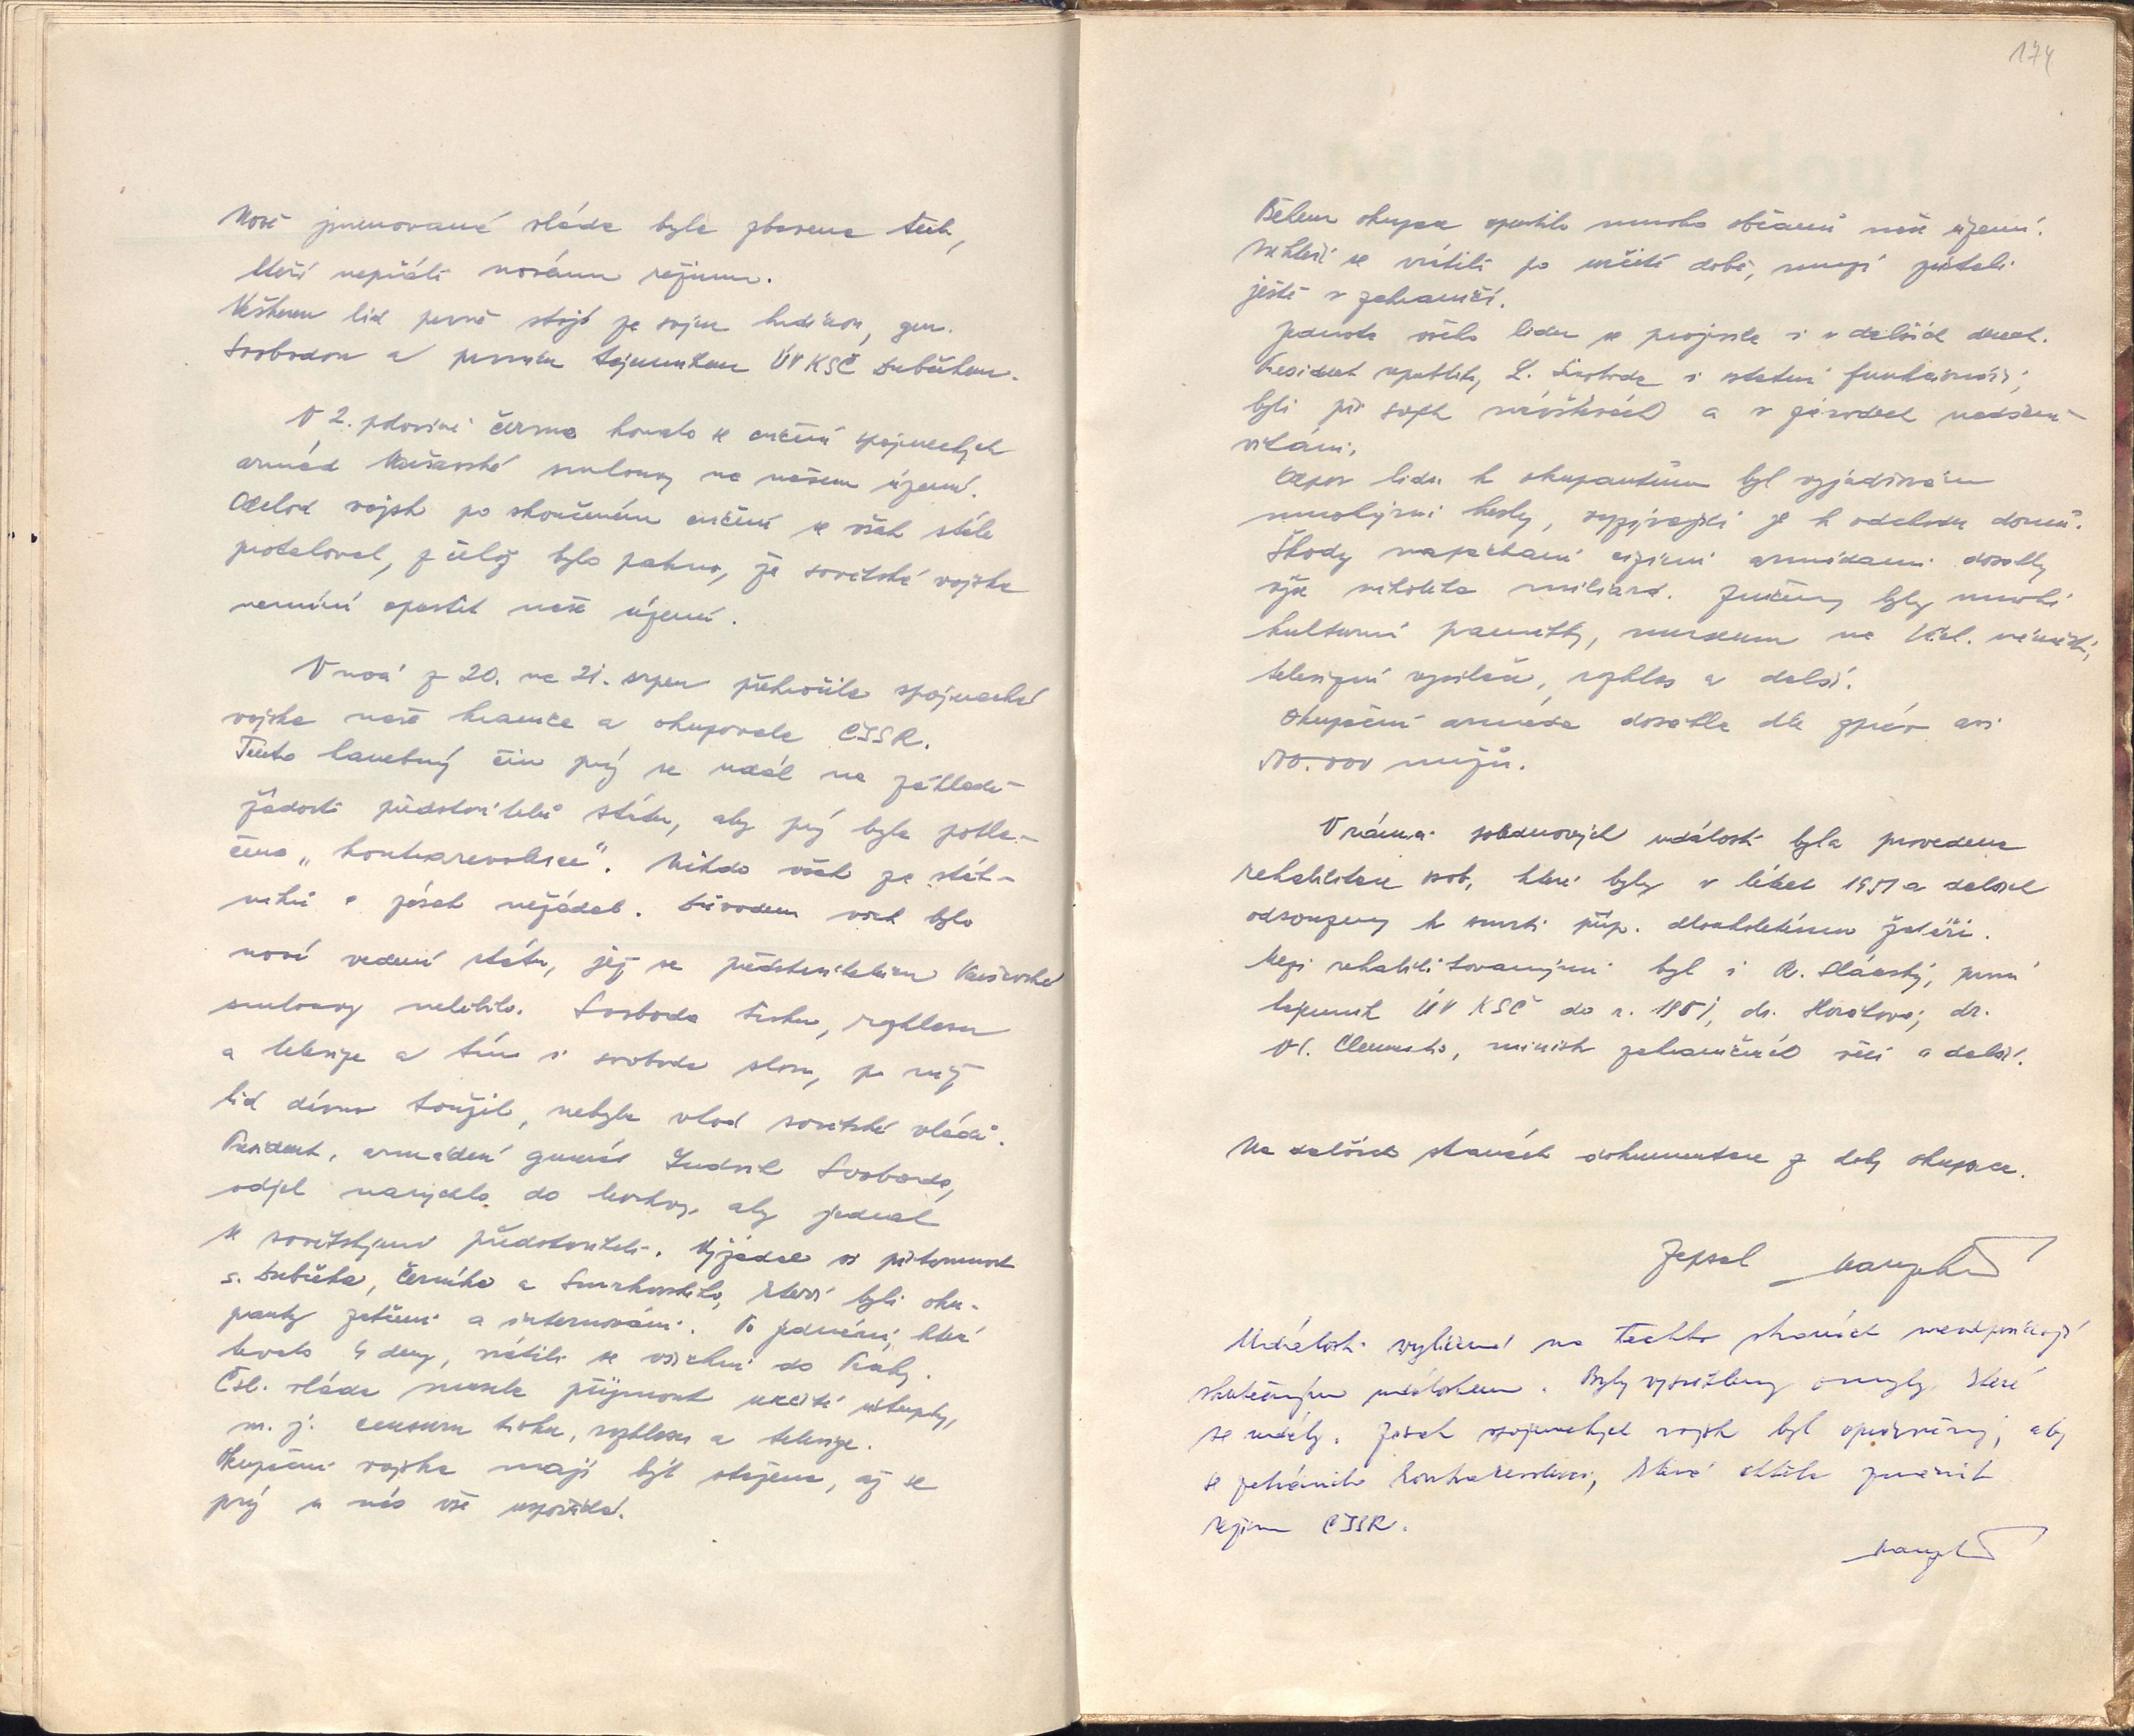 Nově jmenovaná vláda byla zbavena těch,
kteří nepřáli novému režimu.
Veškeren lid pevně stojí za svým hrdinou, gen.
Svobodou a prvním tajemníkem ÚV KSČ Dubčekem.
V 2. polovině června konalo se cvičení spojeneckých
armád Varšavské smlouvy na našem území.
Odchod vojsk po skončeném cvičení se však stále
protahoval, z čehož bylo patrno, že sovětská vojska
nemíní opustit naše území.
V noci z 20. na 21. srpen překročila spojenecká
vojska naše hranice a okupovala ČSSR.
Tento hanebný čin prý se udál na základě
žádosti představitelů státu, aby prý byla potla-
čena „kontrarevoluce". Nikdo však ze stát-
níků o zásah nežádal. Důvodem však bylo
nové vedení státu, jež se představitelům Varšavské
smlouvy nelíbilo. Svoboda tisku, rozhlasu
a televize a tím i svoboda slova, po níž
lid dávno toužil, nebyla vhod sovětské vládě.
President, armádní generál Ludvík Svoboda,
odjel narychlo do Moskvy, aby jednal
se sovětskými představiteli. Vyžádal si přítomnost
s. Dubčeka, Černíka a Smrkovského, kteří byli oku-
panty zatčeni a internováni. Po jednání, které
trvalo 4 dny, vrátili se všichni do Prahy.
Čsl. vláda musela přijmout určité ústupky,
m. j. censuru tisku, rozhlasu a televize.
Okupační vojska mají být stažena, až se
prý u nás vše uspořádá.
174
Během okupace opustilo mnoho občanů naše území.
Někteří se vrátili po určité době, mnozí zůstali
ještě v zahraničí.
Jednota všeho lidu se projevila i v dalších dnech.
President republiky L. Svoboda i státní funkcionáři,
byli při svých návštěvách a v závodech nadšeně
vítáni.
Odpor lidu k okupantům byl vyjadřován
mnohými hesly, vyzývajíci je k odchodu domů.
Škody napáchané cizími armádami dosáhly
výše několika miliard. Zničeny byly mnohé
kulturní památky, museum na Václ. náměstí,
televizní vysílač, rozhlas a další.
Okupační armáda dosáhla dle zpráv asi
500.000 mužů.
V rámci polednových událostí byla provedena
rehabilitace osob, které byly v létech 1951 a dalších
odsouzeny k smrti příp. dlouholetému žaláři.
Mezi rehabilitovanými byl i R. Slánský, první
tajemník ÚV KSČ do r. 1951, dr. Horáková, dr.
Vl. Clementis, ministr zahraničních věcí a další.
Na dalších stranách dokumentace z doby okupace.
Zapsal
Události vylíčené na těchto stranách neodpovídají
skutečným událostem. Byly vysvětleny omyly, které
se udály. Zásah spojeneckých vojsk byl oprávněný, aby
se zabránilo kontrarevoluci, která chtěla změnit
režim ČSSR.